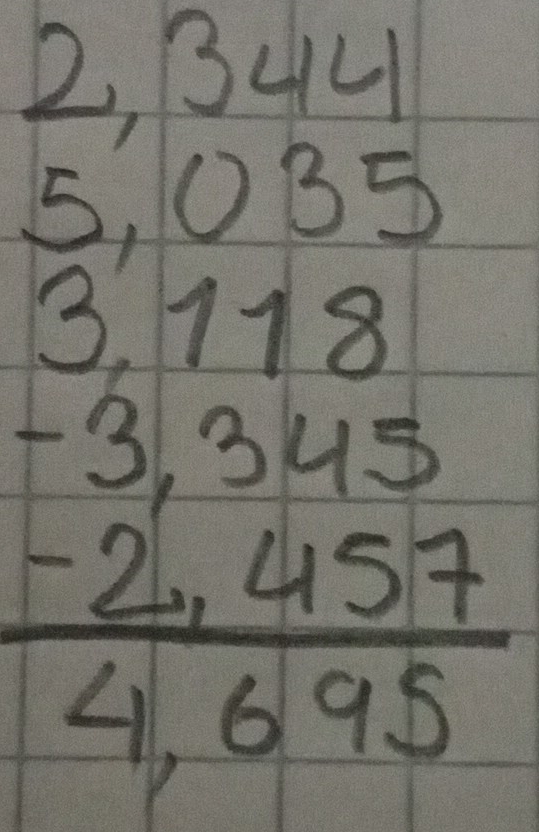 2,344
5,035
3,118
-3,345
-2,457
4,695